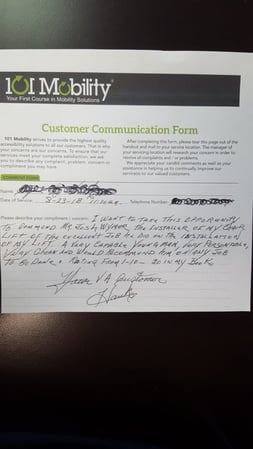 101 Mobility®
Your First Course in Mobility Solutions
Customer Communication Form
101 Mobility strives to provide the highest quality
accessibility solutions to all our customers. That is why
your concerns are our concerns. To ensure that our
services meet your complete satisfaction, we ask
you to describe any complaint, problem, concern or
compliment you may have.
After completing this form, please tear this page out of the
handout and mail to your service location. The manager of
your servicing location will research your concern in order to
resolve all complaints and / or problems.
We appreciate your candid comments as well as your
assistance in helping us to continually improve our
services to our valued customers.
COMMENT FORM
Name
Date of Service 8-23-18 Telephone Number
Please describe your compliment / concern: I WANT TO TAKE THIS OPPORTUNITY
TO COMMEND MR. JOSH THE INSTALLER OF MY CHAIR
LIFT OF THE EXCELLENT JOB HE DID ON THE INSTALLATION
OF MY LIFT. A VERY CAPABLE YOUNG MAN, VERY PERSONABLE,
VERY CLEAN AND WOULD RECOMMEND HIM ON ANY JOB
TO BE DONE. RATING FROM 1-10 — 20 IN MY BOOK
VA Customer
Thanks